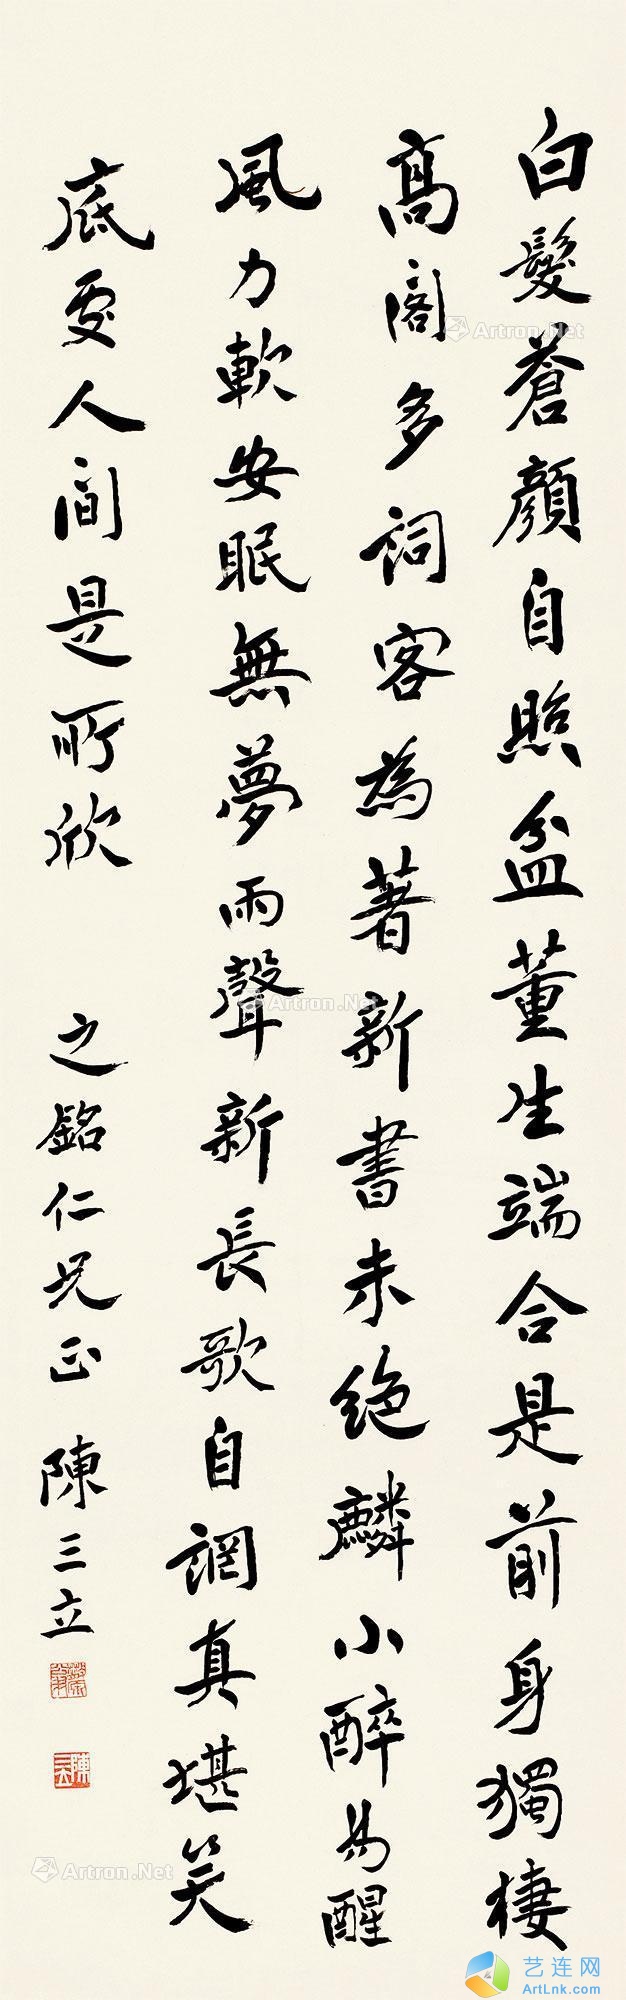 白髮蒼顏自照盆董生端合是前身獨棲
高閣多詞客為著新書未絕麟小醉易醒
風力軟安眠無夢雨聲新長歌自誷真堪笑
底處人間是所欣 之銘仁兄正 陳三立
陳三立
Artron.Net
Artron.Net
Artron.Net
艺连网
ArtLnk.com